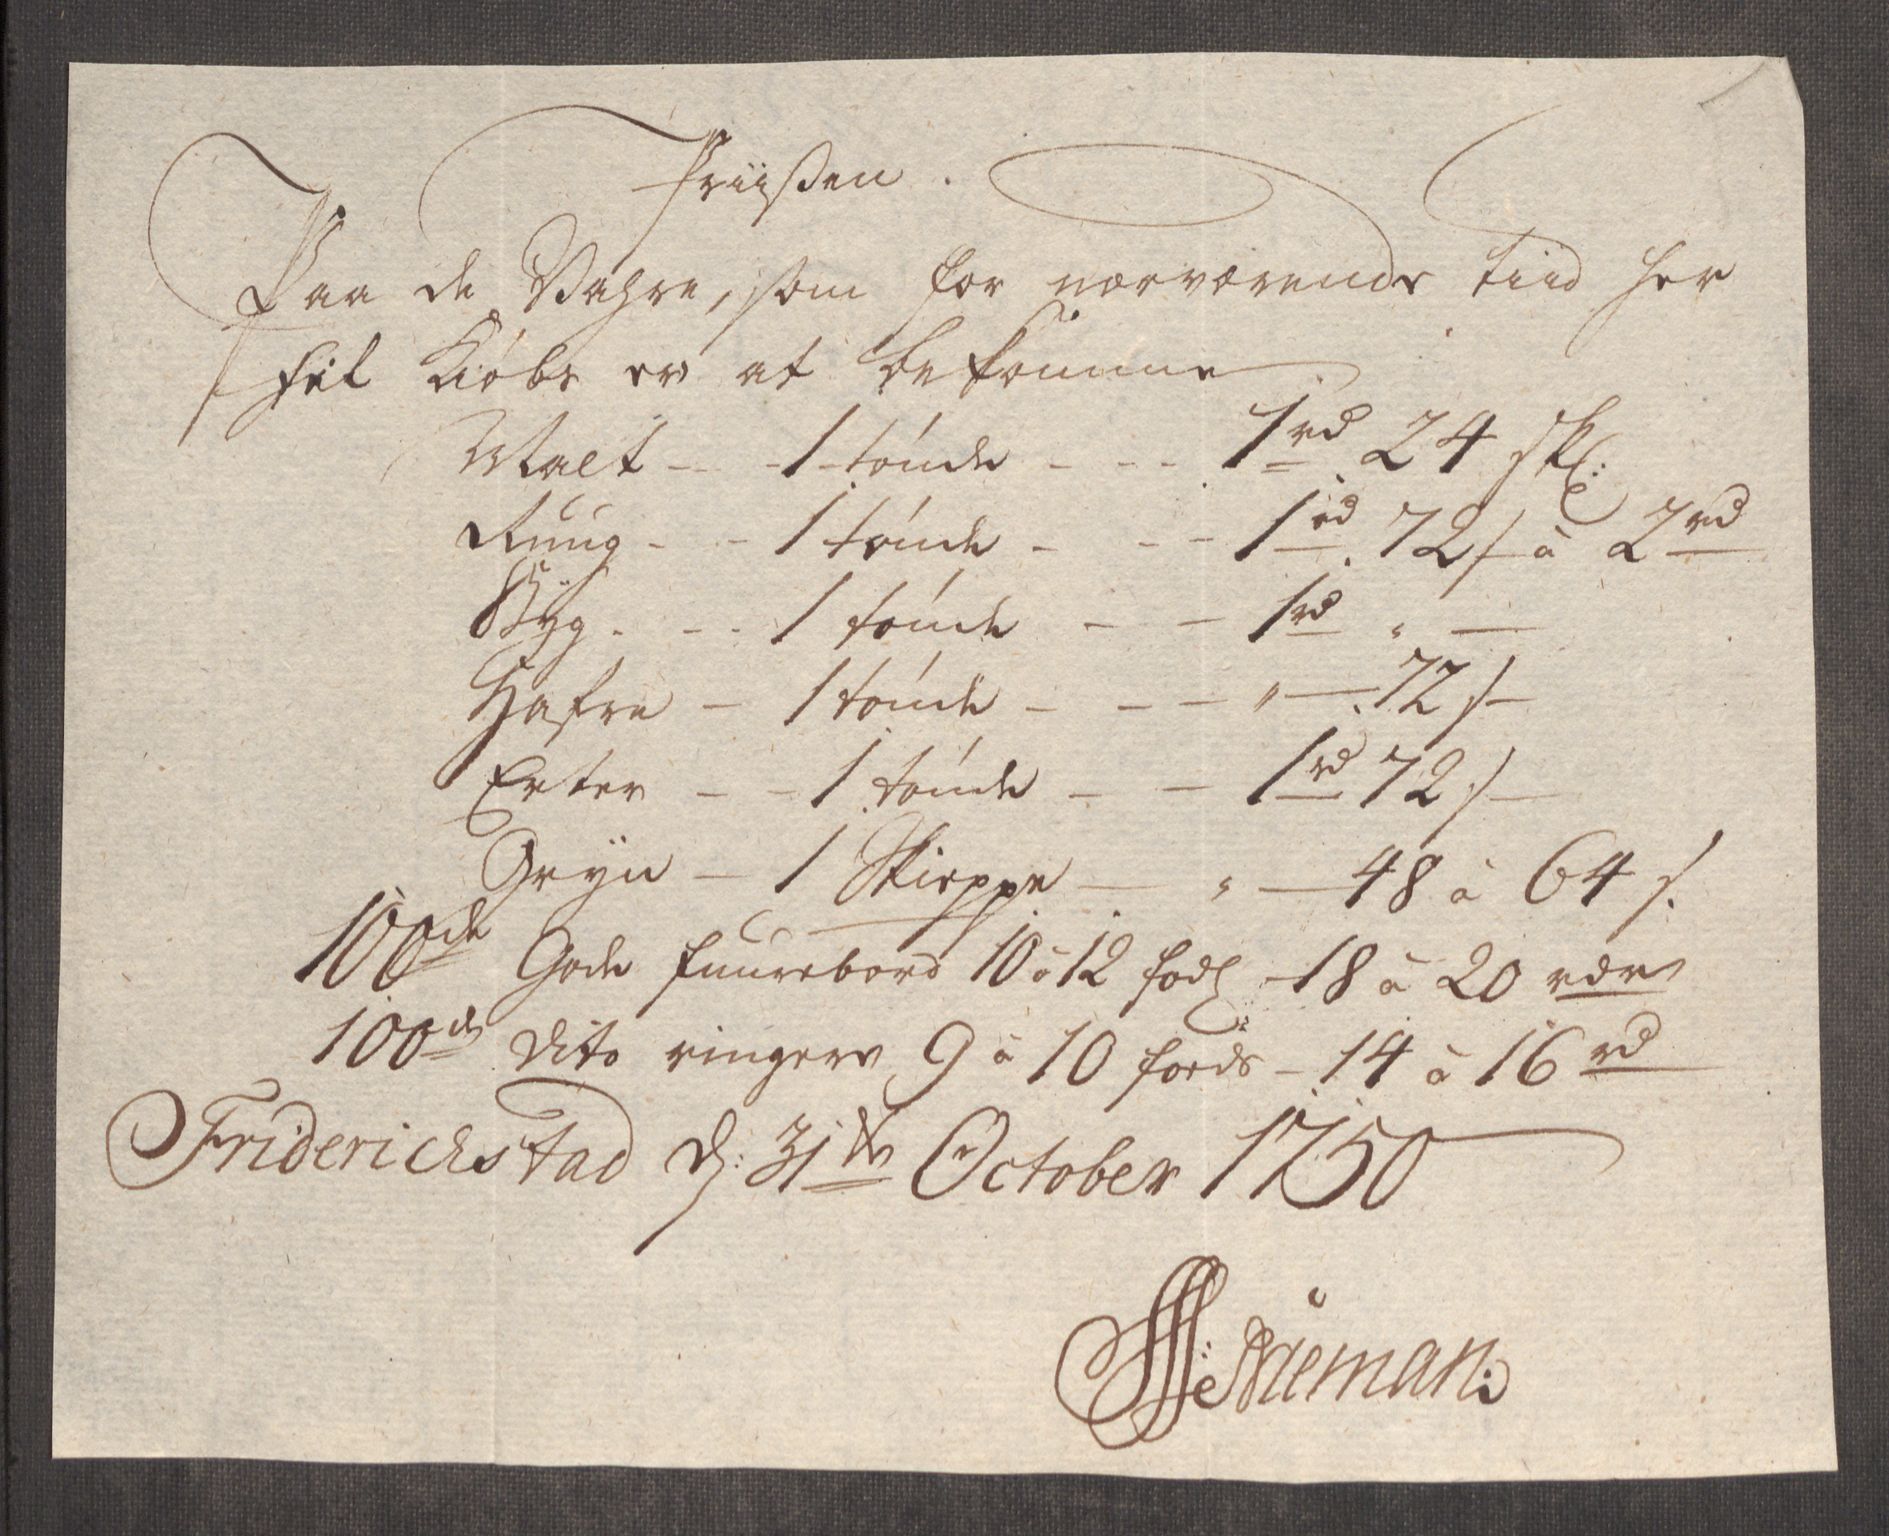 Priißen.
Paa de Vahre, som for nærværende tiid her
til Kiøbs er at bekomme
Malt -- 1 tønde --- 1 rd 24 skl:
Ruug -- 1 tønde --- 1 rd. 72 s à 2 rd
Byg --- 1 tønde -- 1 rd " —
Hafre - 1 tønde --- " — 72 s
Erter -- 1 tønde -- 1 rd 72 s
Gryn — 1 Skieppe — " — 48 à 64 s.
100de Gode fuurebord 10 à 12 fods - 18 à 20 rdr
100de dito ringere 9 à 10 foeds - 14 à 16 rd
Friderichstad d: 31te October 1750